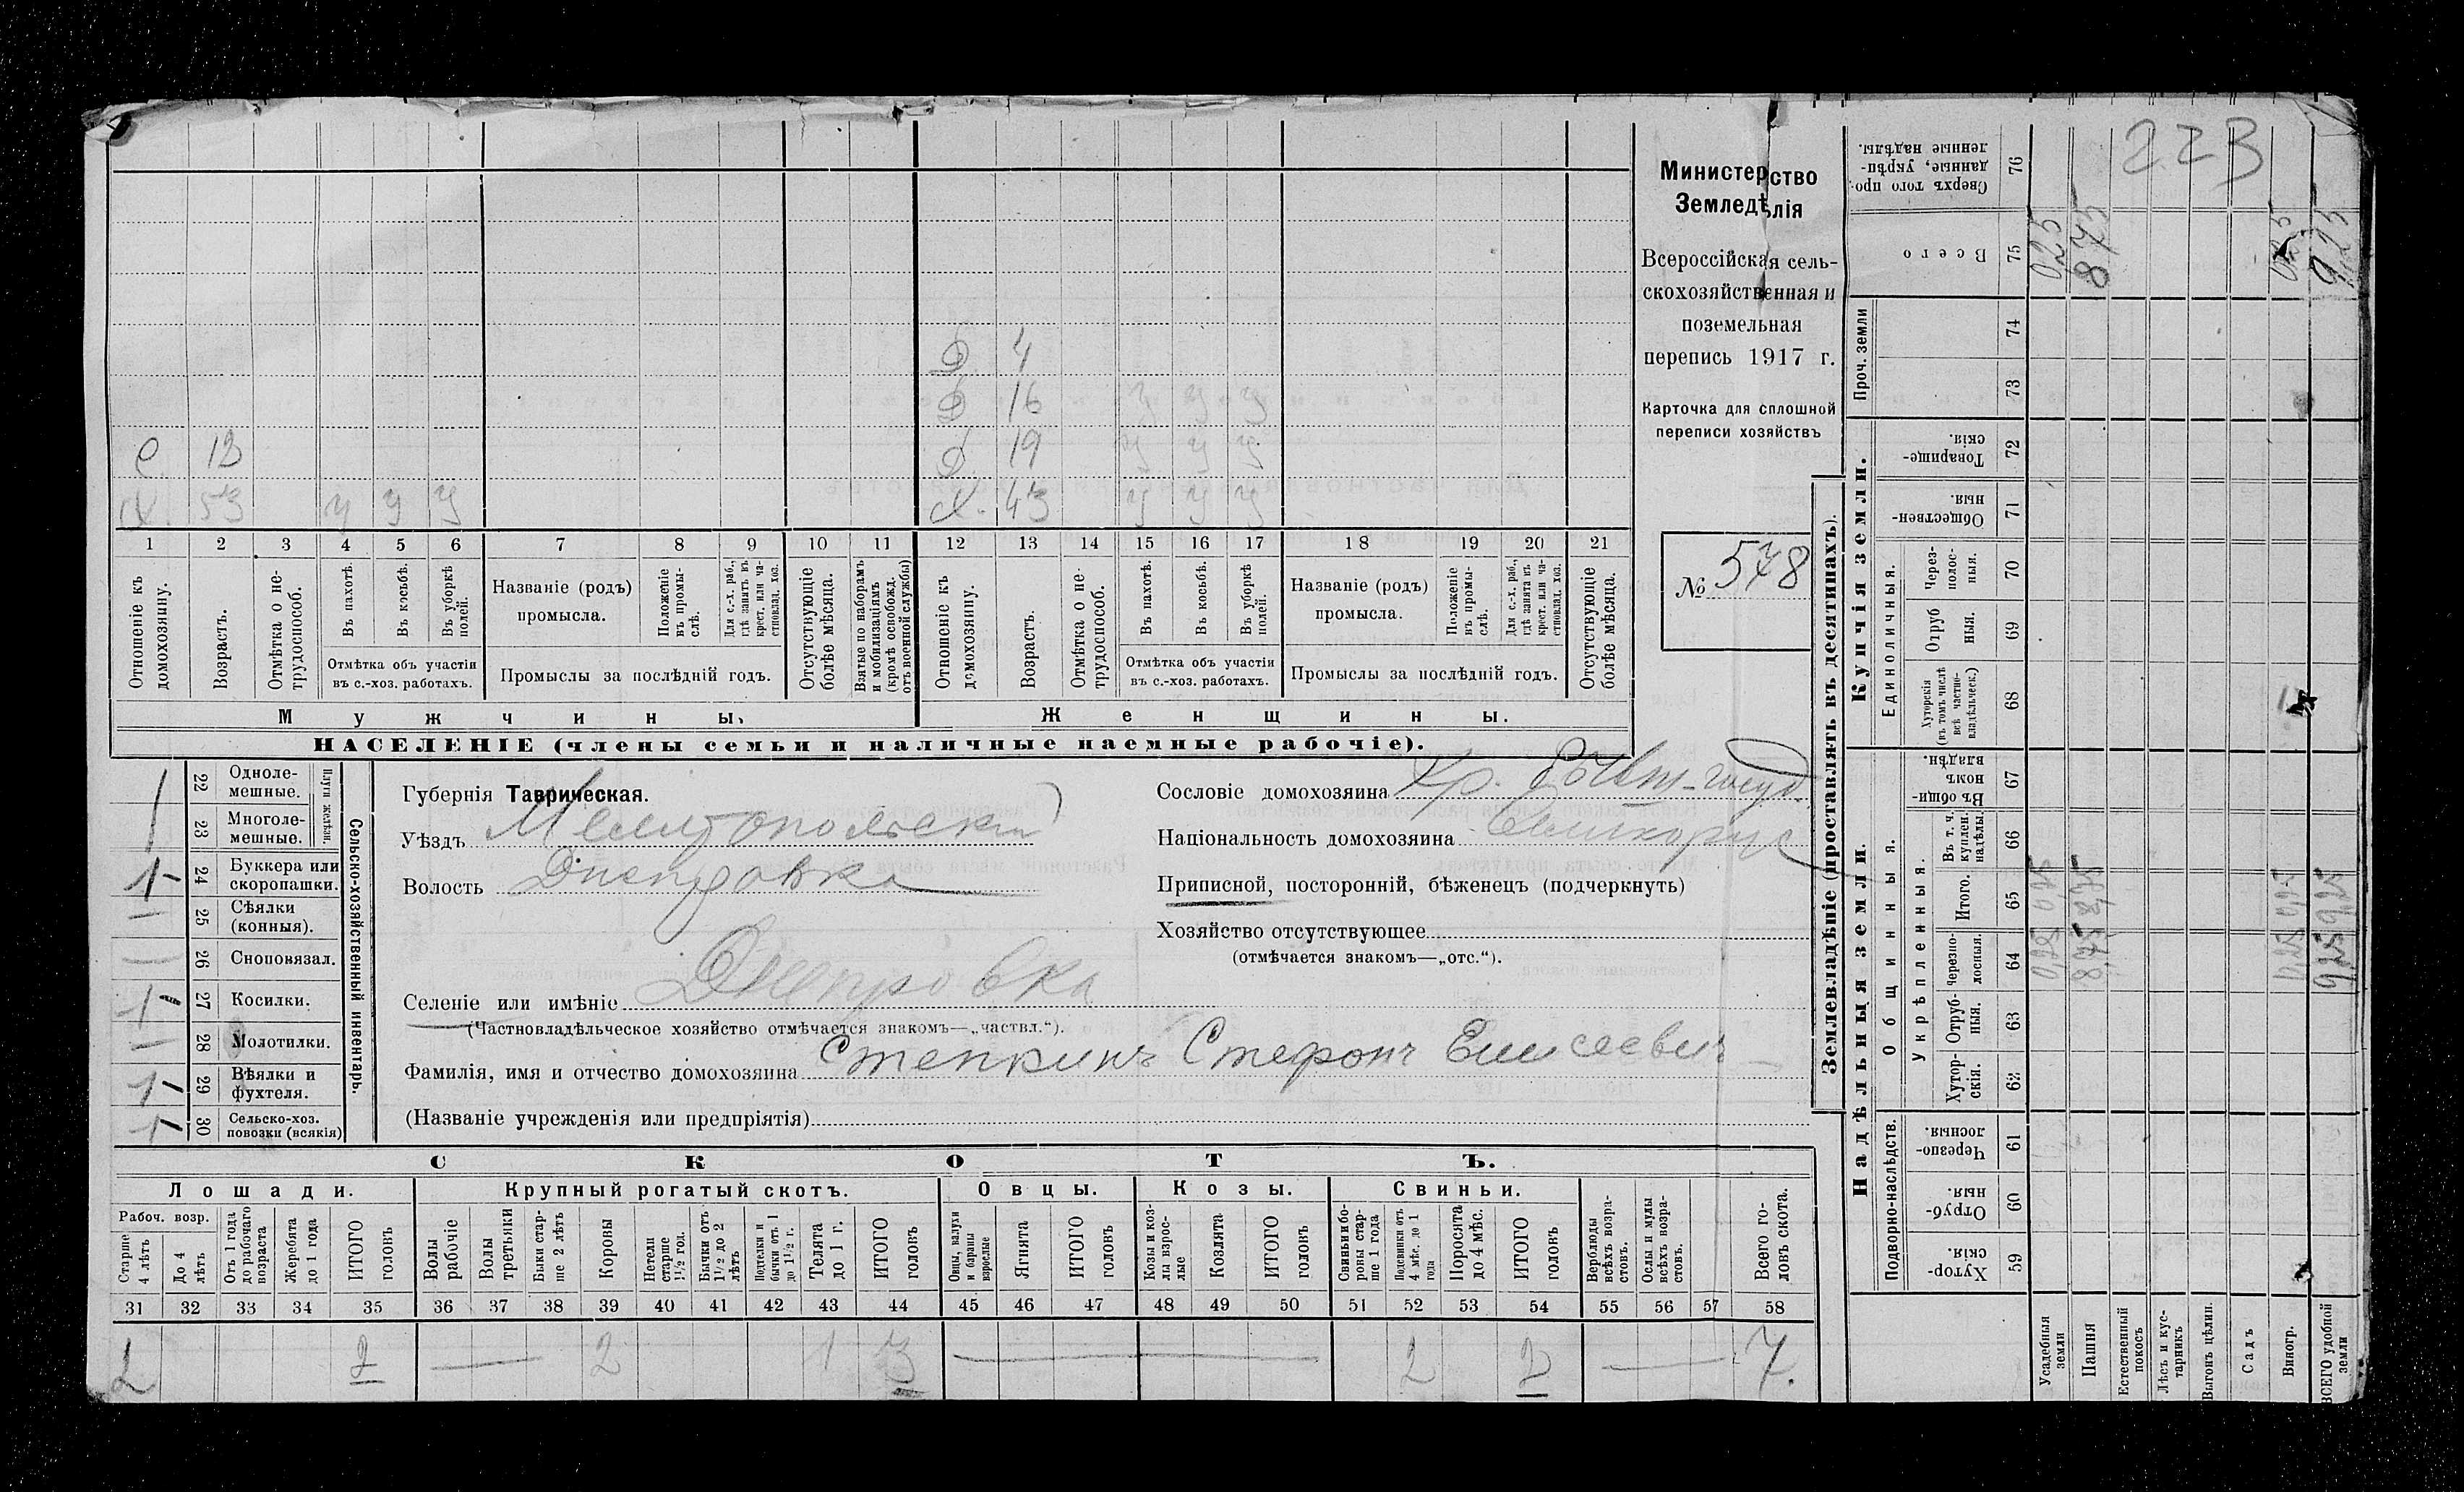 Министерство
Земледѣлія
Всероссійская сель-
скохозяйственная и
поземельная
перепись 1917 г.
Карточка для сплошной
переписи хозяйствъ
№ 578
223
Д. 4
Д 16 у у у
е 13 Д. 19 у у у
Х. 53 у у у Х. 43 у у у
1 2 3 4 5 6 7 8 9 10 11 12 13 14 15 16 17 18 19 20 21
Отношеніе къ домохозяину.
Возрастъ.
Отмѣтка о не-трудоспособ.
Въ пахотѣ.
Въ косьбѣ.
Въ уборкѣ полей.
Отмѣтка объ участіи
въ с.-хоз. работахъ.
Названіе (родъ)
промысла.
Положеніе въ промы-слѣ.
Для с.-х. раб., гдѣ занятъ въ крест. или ча-стновлад. хоз.
Промыслы за послѣдній годъ.
Отсутствующіе болѣе мѣсяца.
Взятые по наборамъ и мобилизаціямъ (кромѣ освобожд. отъ военной службы)
Отношеніе къ домохозяину.
Возрастъ.
Отмѣтка о не-трудоспособ.
Въ пахотѣ.
Въ косьбѣ.
Въ уборкѣ полей.
Отмѣтка объ участіи
въ с.-хоз. работахъ.
Названіе (родъ)
промысла.
Положеніе въ промы-слѣ.
Для с.-х. раб., гдѣ занята въ крест. или ча-стновлад. хоз.
Промыслы за послѣдній годъ.
Отсутствующіе болѣе мѣсяца.
Мужчины.
Женщины.
НАСЕЛЕНІЕ (члены семьи и наличные наемные рабочіе).
22 Одноле-мешные.
23 Многоле-мешные.
Плуги желѣзн.
1- 24 Буккера или скоропашки.
— 25 Сѣялки (конныя).
— 26 Сноповязал.
1- 27 Косилки.
— 28 Молотилки.
1- 29 Вѣялки и фухтеля.
1- 30 Сельско-хоз. повозки (всякія)
Сельско-хозяйственный инвентарь.
Губернія Таврическая.
Уѣздъ Мелитопольскій
Волость Днепровка
Селеніе или имѣніе Днепровка
(Частновладѣльческое хозяйство отмѣчается знакомъ—„частвл.“).
Фамилія, имя и отчество домохозяина Степкинъ Стефонъ Елисеевичъ
(Названіе учрежденія или предпріятія)
Сословіе домохозяина Кр.
Національность домохозяина Великорус
Приписной, посторонній, бѣженецъ (подчеркнуть)
Хозяйство отсутствующее
(отмѣчается знакомъ—„отс.“).
СКОТЪ.
Лошади.
Крупный рогатый скотъ.
Овцы.
Козы.
Свиньи.
Рабоч. возр.
Старше 4 лѣтъ
До 4 лѣтъ
Отъ 1 года до рабочаго возраста
Жеребята до 1 года
ИТОГО головъ
Волы рабочіе
Волы третьяки
Быки стар-ше 2 лѣтъ
Коровы
Нетели старше 1½ год.
Бычки отъ 1½ до 2 лѣтъ
Подтелки и бычки отъ 1 до 1½ г.
Телята до 1 г.
ИТОГО головъ
Овцы, валухи и бараны взрослые
Ягнята
ИТОГО головъ
Козы и коз-лы взрос-лые
Козлята
ИТОГО головъ
Свиньи и бо-ровы стар-ше 1 года
Подсвинки отъ 4 мѣс. до 1 года
Поросята до 4 мѣс.
ИТОГО головъ
Верблюды всѣхъ возра-стовъ.
Ослы и мулы всѣхъ возра-стовъ.
Всего го-ловъ скота.
31 32 33 34 35 36 37 38 39 40 41 42 43 44 45 46 47 48 49 50 51 52 53 54 55 56 57 58
2 2 — 2 1 3 — 2 2 — 7.
Землевладѣніе (проставлять въ десятинахъ).
Надѣльныя земли.
Купчія земли.
Проч. земли
Подворно-наслѣдств.
Общинныя.
Укрѣпленныя.
Единоличныя.
Хутор-скія. 59
Отруб-ныя. 60
Черезпо-лосныя. 61
Хутор-скія. 62
Отруб-ныя. 63
Черезпо-лосныя. 64
Итого. 65
Въ т. ч. куплен. надѣлы. 66
Въ общи-номъ владѣн. 67
Хуторскія (въ томъ числѣ всѣ частно-владѣльческ.) 68
Отруб ныя. 69
Через-полос-ныя. 70
Обществен-ныя. 71
Товарище-скія. 72
73
74
Всего 75
Сверхъ того про-данные, укрѣп-ленные надѣлы. 76
Усадебныя земли 0,25 0,25 025
Пашня 8,75 8,75 875
Естественный покосъ
Лѣсъ и кус-тарникъ
Выгонъ цѣлин.
Садъ
Виногр. 0,25
ВСЕГО удобной земли 9,25 9,25 9,25